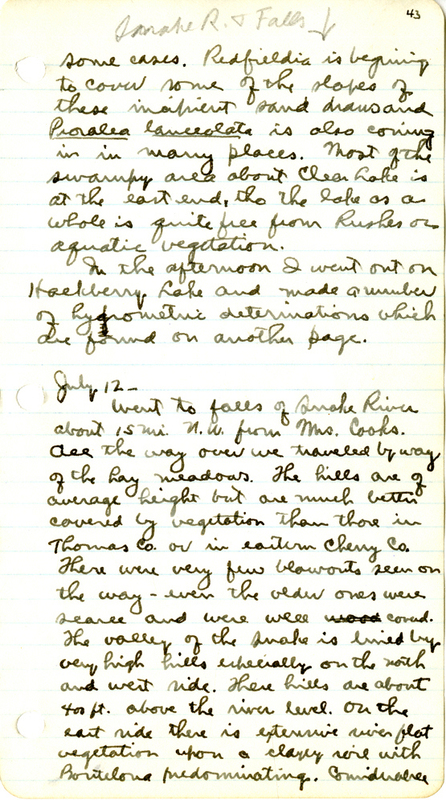 43
Snake R. & Falls ↓
some cases. Redfieldia is begining
to cover some of the slopes of
these incipient sand draws and
Psoralea lanceolata is also coming
in in many places. Most of the
swampy area about Clear Lake is
at the east end, tho the lake as a
whole is quite free from Rushes or
aquatic vegetation.
In the afternoon I went out on
Hackberry Lake and made a number
of hydrometric deterinations which
are found on another page.
July 12-
Went to falls of Snake River
about 15 mi. N.W. from Mrs. Cooks.
All the way over we traveled by way
of the hay meadows. The hills are of
average height but are much better
covered by vegetation than those in
Thomas Co. or in eastern Cherry Co.
There were very few blowouts seen on
the way - even the older ones were
scarce and were well coverd.
The valley of the Snake is lined by
very high hills especially on the north
and west side. These hills are about
400 ft. above the river level. On the
east side there is extensive river flat
vegetation upon a clayey soil with
Boutelona predominating. Considerable